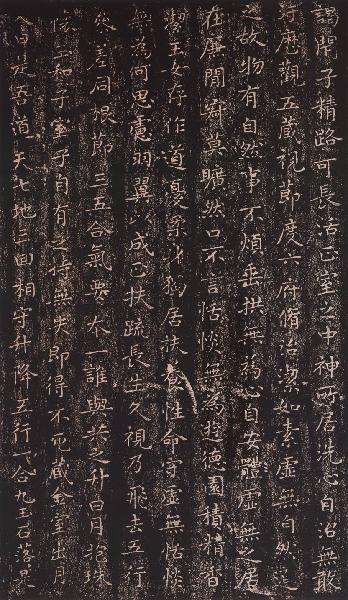 調閉子精路可長活正室之中神所居洗心自治無敢
汙歷觀五藏視節度六府脩治潔如素虛無自然道
之故物有自然事不煩垂拱無為心自安體虛無之居
在廉間寂莫曠然口不言恬惔無為遊德園積精香
潔玉女存作道憂柔身獨居扶養性命守虛無恬惔
無為何思慮羽翼以成正扶疏長生久視乃飛去五行
參差同根節三五合氣要本一誰與共之升日月抱珠
懷玉和子室子自有之持無失即得不死藏金室出月
入日是吾道天七地三回相守升降五行一合九玉石落是